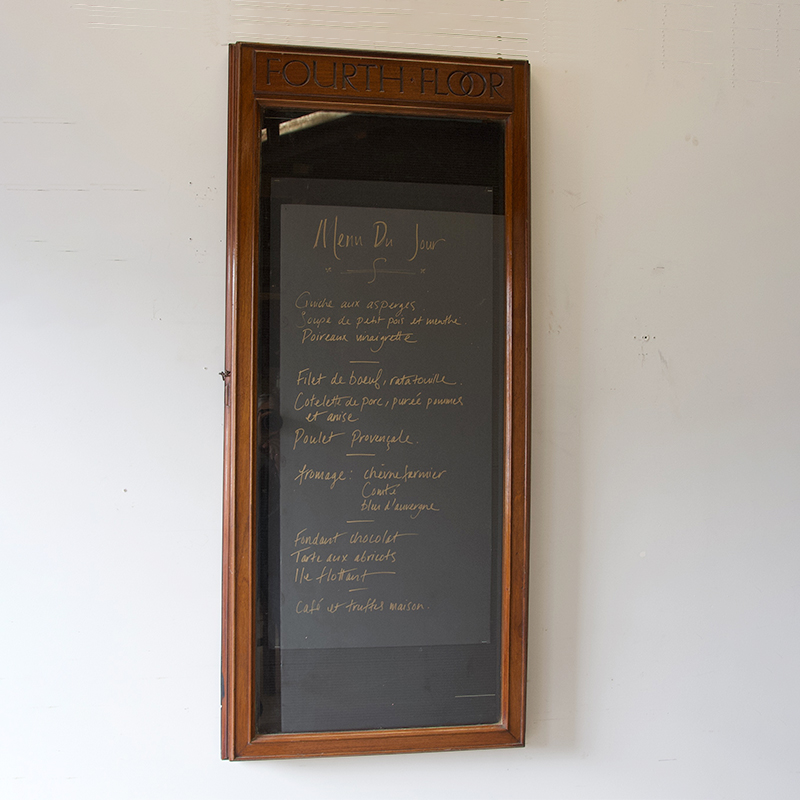 FOURTH·FLOOR
Menu Du Jour
Quiche aux asperges
Soupe de petit pois et menthe.
Poireaux vinaigrette
Filet de boeuf, ratatouille.
Cotelette de porc, pureé pommes
et anise
Poulet Provençale.
fromage: chèvre farmier
Comté
bleu d'auvergne
Fondant chocolat
Tarte aux abricots
Ile flottant
Café et truffes maison.